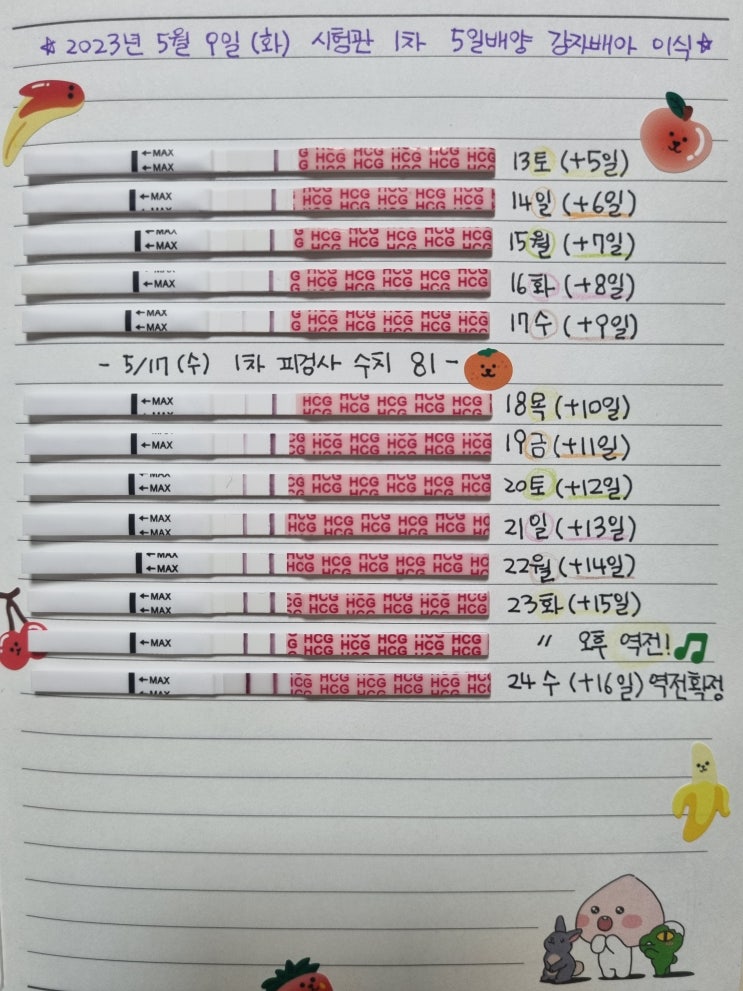 ☆ 2023년 5월 9일 (화) 시험관 1차 5일배양 감자배아 이식 ☆
←MAX HCG HCG HCG HCG 13토 (+5일)
←MAX HCG HCG HCG HCG 14일 (+6일)
←MAX HCG HCG HCG HCG 15월 (+7일)
←MAX HCG HCG HCG HCG 16화 (+8일)
←MAX HCG HCG HCG HCG 17수 (+9일)
- 5/17 (수) 1차 피검사 수치 81 -
←MAX HCG HCG HCG HCG 18목 (+10일)
←MAX HCG HCG HCG HCG 19금 (+11일)
←MAX HCG HCG HCG HCG 20토 (+12일)
←MAX HCG HCG HCG HCG 21일 (+13일)
←MAX HCG HCG HCG HCG 22월 (+14일)
←MAX HCG HCG HCG HCG 23화 (+15일)
←MAX HCG HCG HCG HCG 〃 오후 역전!
←MAX HCG HCG HCG HCG 24수 (+16일) 역전확정